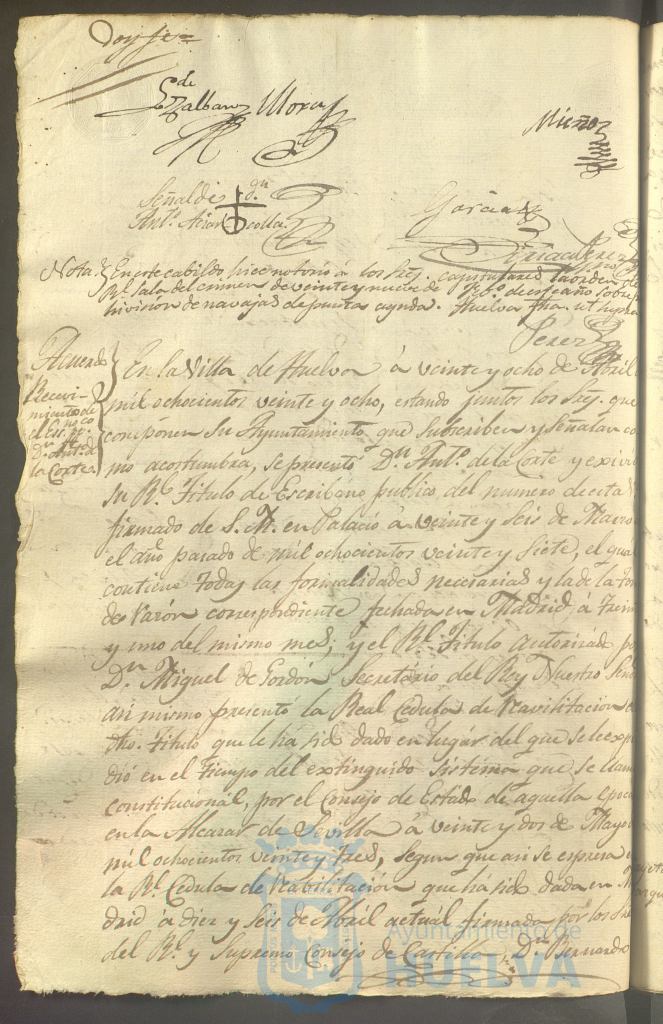 Doy fe
de
Zalbara Mora
Muñoz
Señal de D.n
Ant.o Scolla
Garcia
Perez
Nota. En este cabildo hice notorio á los Sres. capitulares la orden de
Rl. Sala del crimen de veinte y nueve de Feb.o de este año sobre
hivision de navajas de punta aguda. Huelva fha. ut supra
Perez
Acuerdo
Recivi-
miento de
el Es.no pco.
D.n Ant.o de
la Corte
En la Villa de Huelva á veinte y ocho de Abril
mil ochocientos veinte y ocho, estando juntos los Sres. que
componen su Ayuntamiento que subscriben y señalan co
mo acostumbra, se presentó D.n Ant.o de la Corte y exivió
su Rl. Titulo de Escribano publico del numero de esta V
firmado de S. M. en Palacio á veinte y seis de Marzo
el año pasado de mil ochocientos veinte y siete, el qual
contiene todas las formalidades necesarias y la de la tom
de razón correspondiente fechada en Madrid á trein
y uno del mismo mes; y el Rl. Titulo autorizado po
D.n Miguel de Gordón Secretario del Rey Nuestro Señ
asi mismo presentó la Real Cedula de reavilitacion d
dho. Titulo que le há sido dado en lugar del que se le exp
dió en el tiempo del extinguido sistema que se llam
constitucional, por el Consejo de Estado de aquella epoca
en la Alcazar de Sevilla á veinte y dos de Mayo
mil ochocientos veinte y tres, segun que asi se espresa e
la Rl. Cedula de reabilitación que há sido dada en Ma
drid á diez y seis de Abril actuál firmada por los Sre
del Rl. y Supremo Consejo de Castilla, D.n Bernardo
Ayuntamiento de
HUELVA